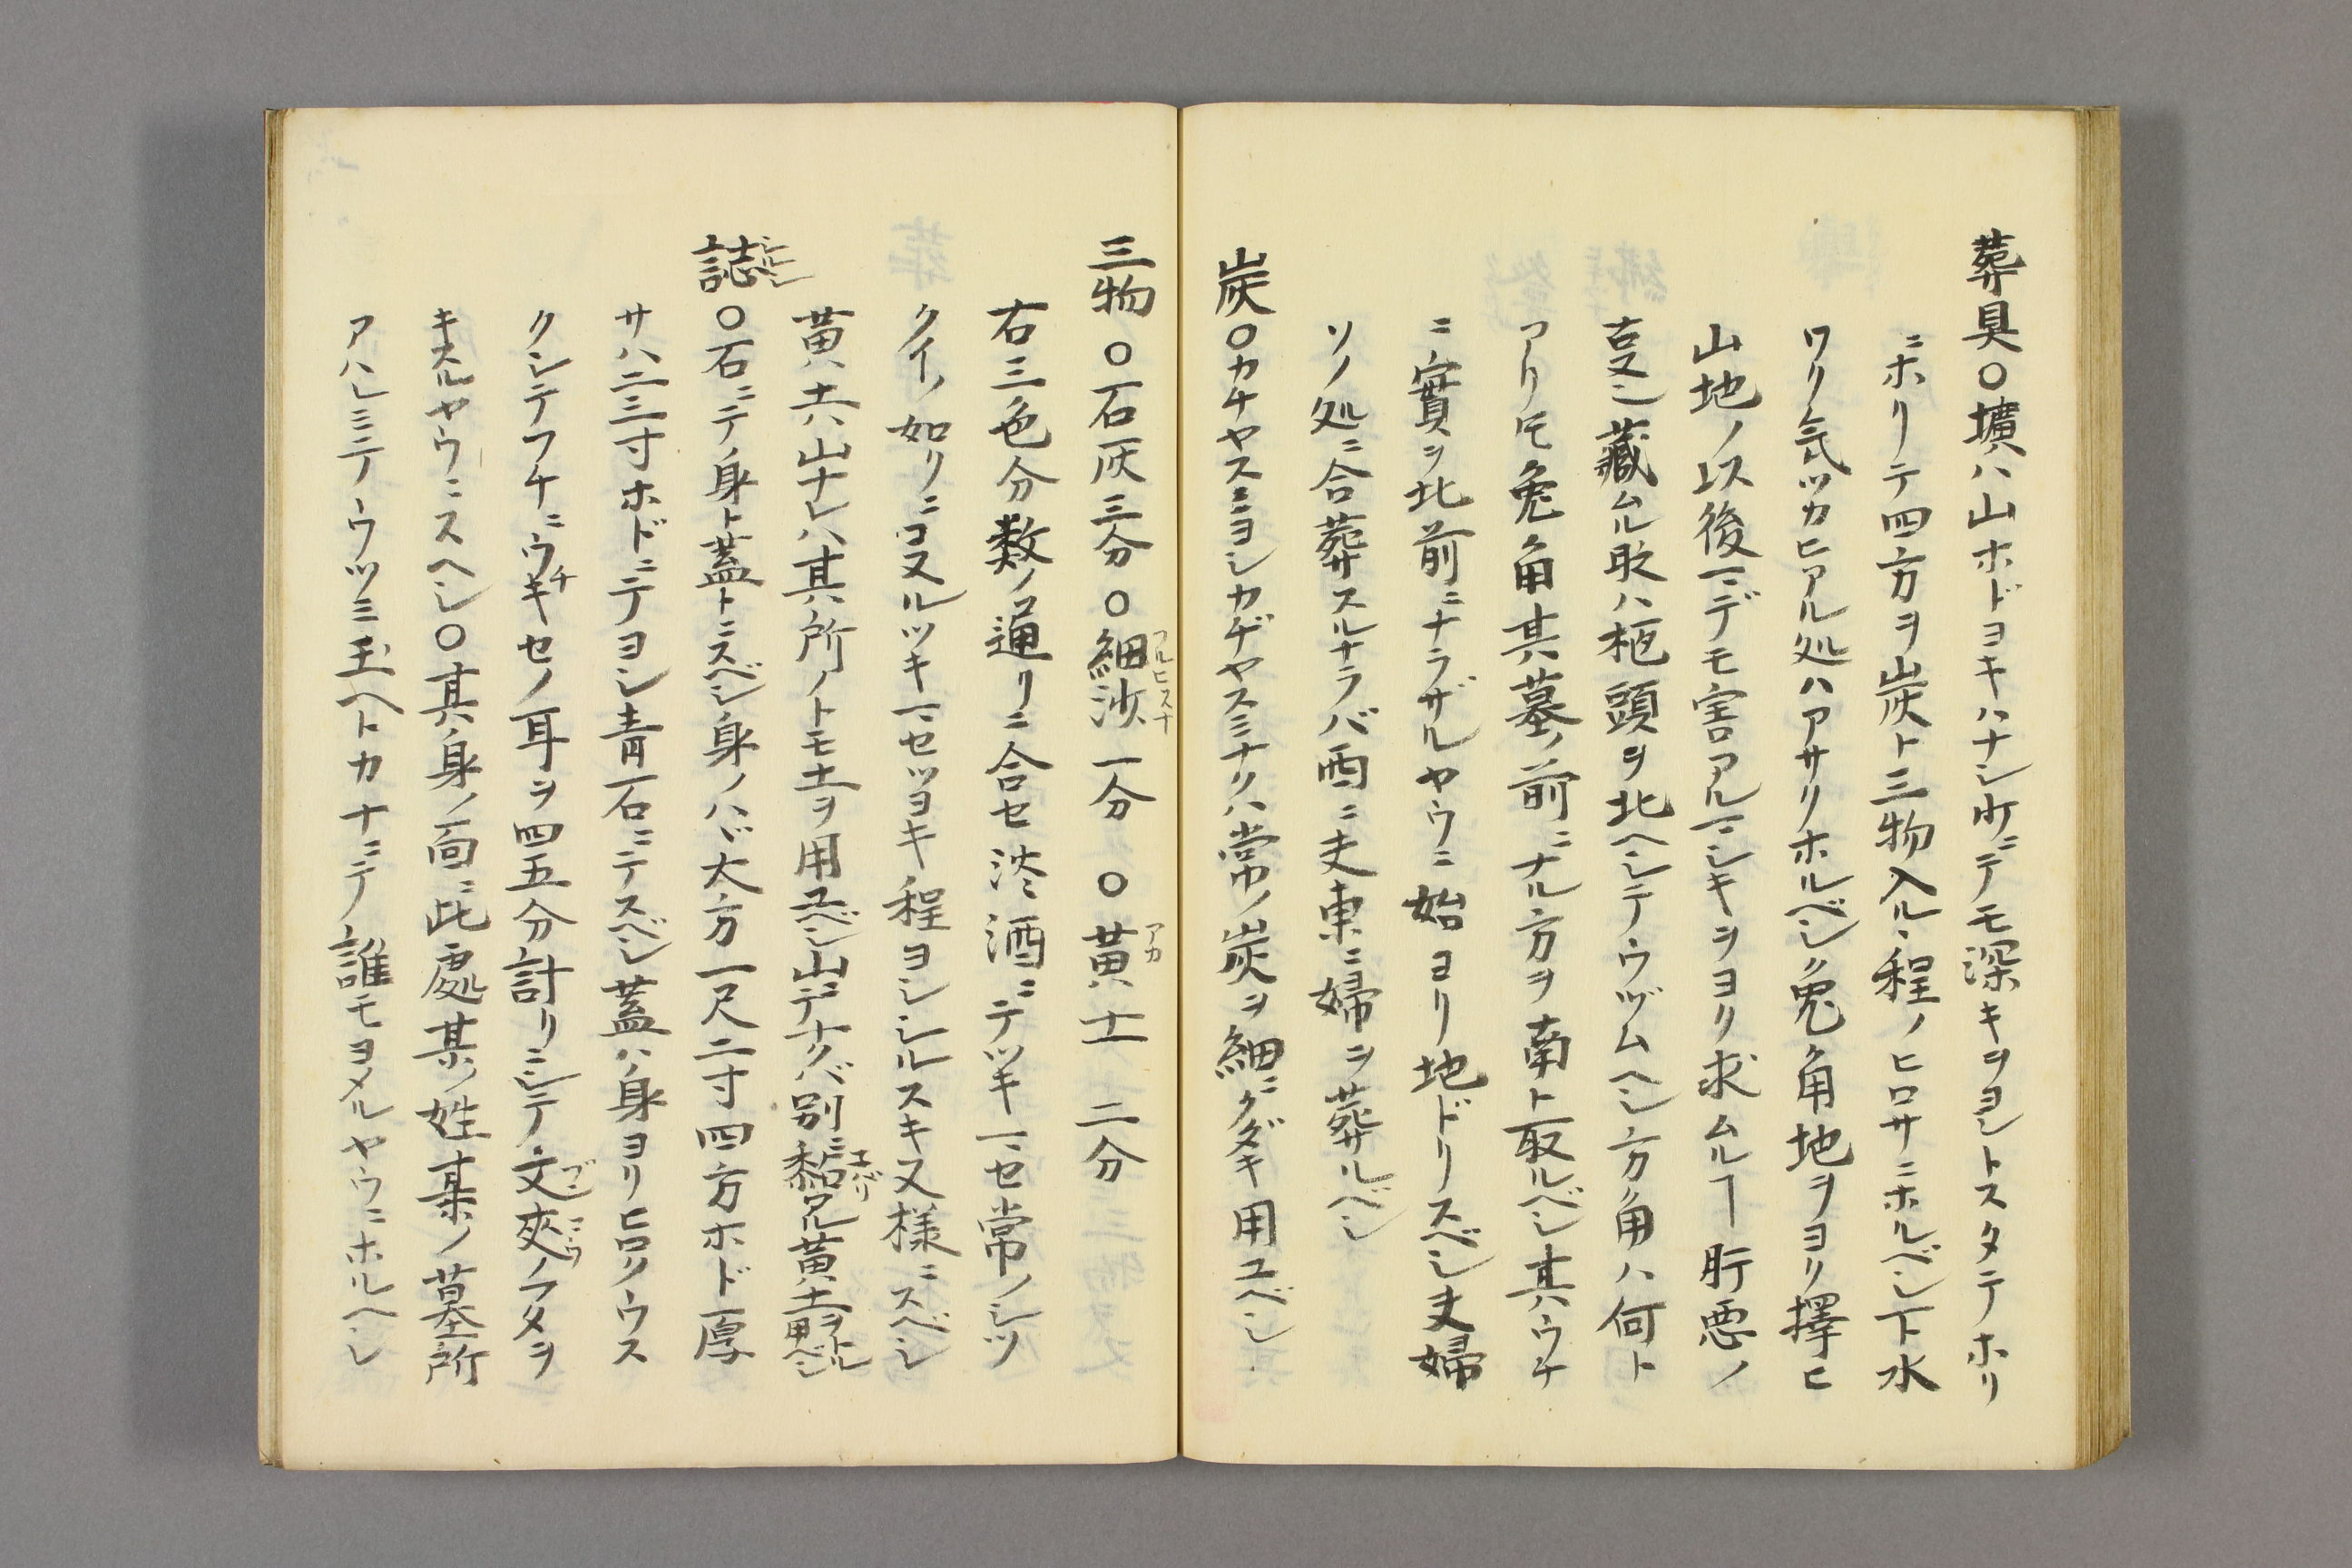 葬具〇壙ハ山ホドヨキハナシ町ニデモ深キヲヨシトスタテホリ
ニホリテ四方ヲ炭ト三物入ル、程ノヒロサニホルベシ下水
ワリ気ヅカヒアル処ハアサクホルベシ兔角地ヲヨク擇ヒ
山地ノ以後マデモ害アルマシキヲヨク求ムルヿ肝要ノ
藏ムル時ハ柩頭ヲ北ヘシテウヅムヘシ方角ハ何ト
アリ𪜈兔角其墓ノ前ニナル方ヲ南ト取ルベシ其ウチ
ニ實ヲ北前ニナラザルヤウニ始ヨリ地ドリスベシ夫婦
ソノ処ニ合葬スルナラバ西ニ夫東ニ婦ヲ葬ルベシ
炭〇カチヤスミヨシカヂヤスミナクハ常ノ炭ヲ細ニクダキ用ユベシ
三物〇石灰三分〇細沙一分〇黄土二分
右三色分数ノ通リニ合セ淡酒ニテツキマセ常ノシツ
クイノ如クニコヌルツキマセツヨキ程ヨシシルスキ又様ニスベシ
黄土ハ山ナレハ其所ノトモ土ヲ用ユベシ山デナクバ別ニ黏アル黄土ヲトル用ベシ
誌〇石ニテ身ト蓋トニスベシ身ノハヾ大方一尺二寸四方ホド厚
サハ二三寸ホドニテヨシ青石ニテスベシ蓋ハ身ヨリヒロクウス
クシテフチニウチキセノ耳ヲ四五分計リニシテ文夾ノフタヲ
キスルヤウニスヘシ〇其身ノ面ニ此處某ノ姓某ノ墓所
アハレミテウツミ玉ヘトカナニテ誰モヨメルヤウニホルヘシ